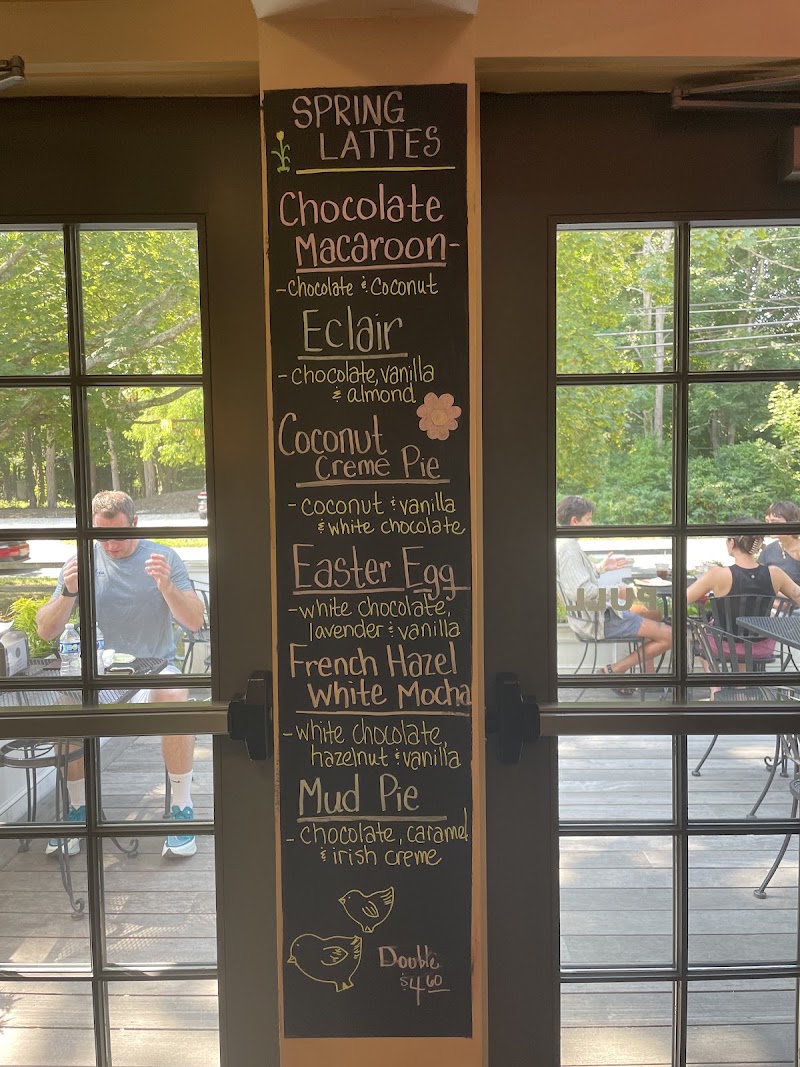 SPRING
LATTES
Chocolate
Macaroon-
-chocolate & coconut
Eclair
-chocolate, vanilla
& almond
Coconut
Creme Pie
-coconut & vanilla
& white chocolate
Easter Egg
-white chocolate,
lavender & vanilla
French Hazel
White Mocha
-white chocolate,
hazelnut & vanilla
Mud Pie
-chocolate, caramel
& irish creme
Double
$4.60
PULL